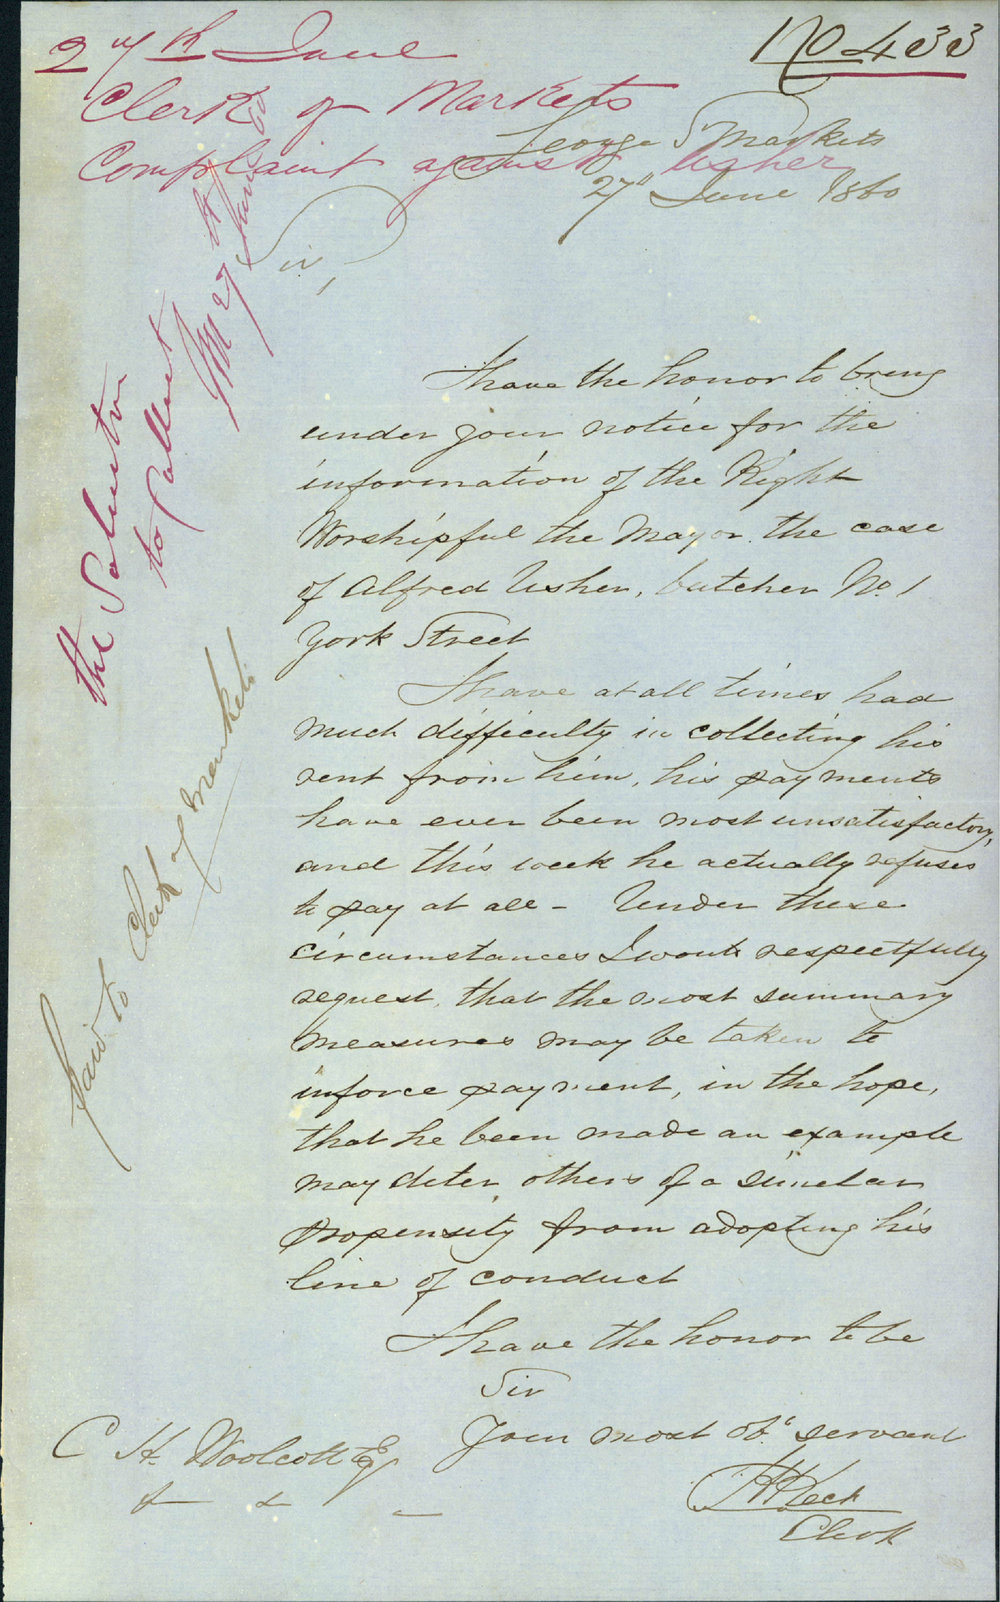 No 433
27th June
Clerk of Markets
Complaint against Usher
George St Markets
27" June 1860
Sir,
I have the honor to bring
under your notice for the
information of the Right
Worshipful the Mayor the case
of Alfred Usher, butcher No. 1
York Street
I have at all times had
much difficulty in collecting his
rent from him, his payments
have ever been most unsatisfactory,
and this week he actually refuses
to pay at all - Under these
circumstances I would respectfully
request, that the most summary
measures may be taken to
inforce payment, in the hope,
that he been made an example
may deter others of a similar
propensity from adopting his
line of conduct
I have the honor to be
Sir
Your most obt servant
Clerk
C H. Woolcott Esq
& & —
the Solicitor
to
27th June 60
to Clerk of Markets